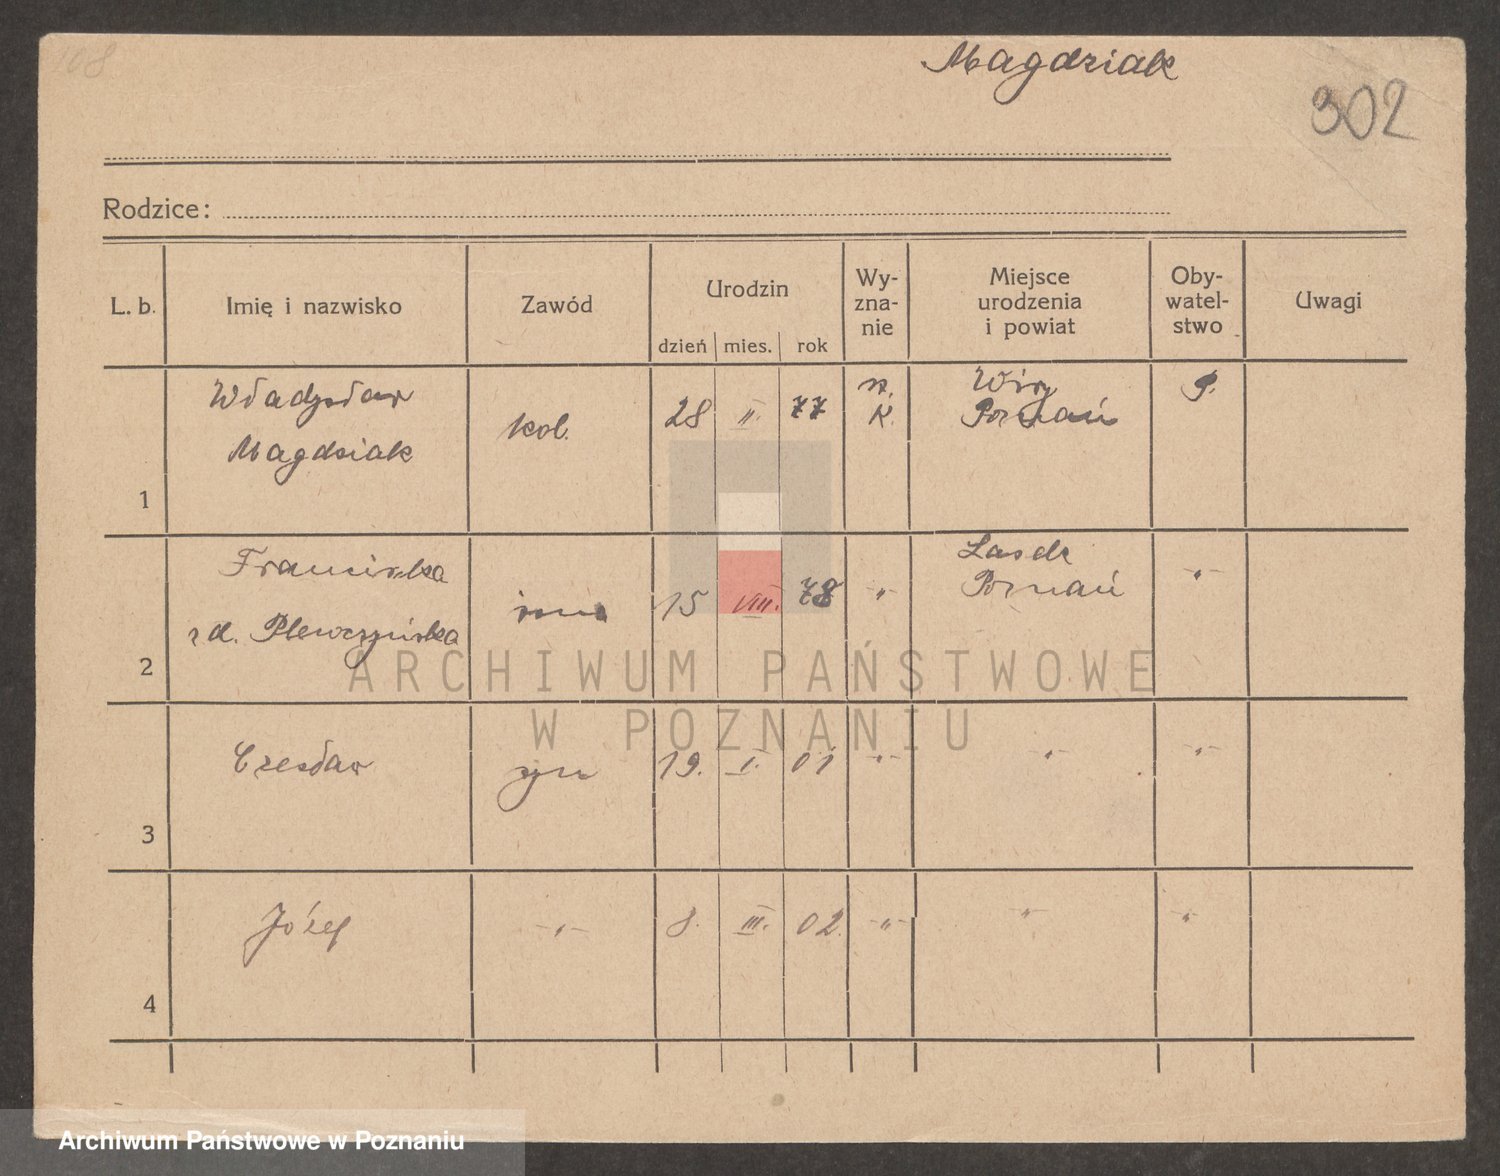 108
Magdziak
302
Rodzice:
L. b.
Imię i nazwisko
Zawód
Urodzin
dzień
mies.
rok
Wy-
zna-
nie
Miejsce
urodzenia
i powiat
Oby-
watel-
stwo
Uwagi
Władysław
Magdziak
1
kol.
28
II.
77
rz.
K.
Wiry
Poznań
P.
Franciszka
zd. Plewczyńska
2
żona
15
VIII.
78
"
Lasek
Poznań
-"-
ARCHIWUM PAŃSTWOWE
W POZNANIU
Czesław
3
syn
19.
I.
01
-"-
-"-
-"-
Józef
4
-"-
8.
III.
02.
-"-
-"-
-"-
Archiwum Państwowe w Poznaniu